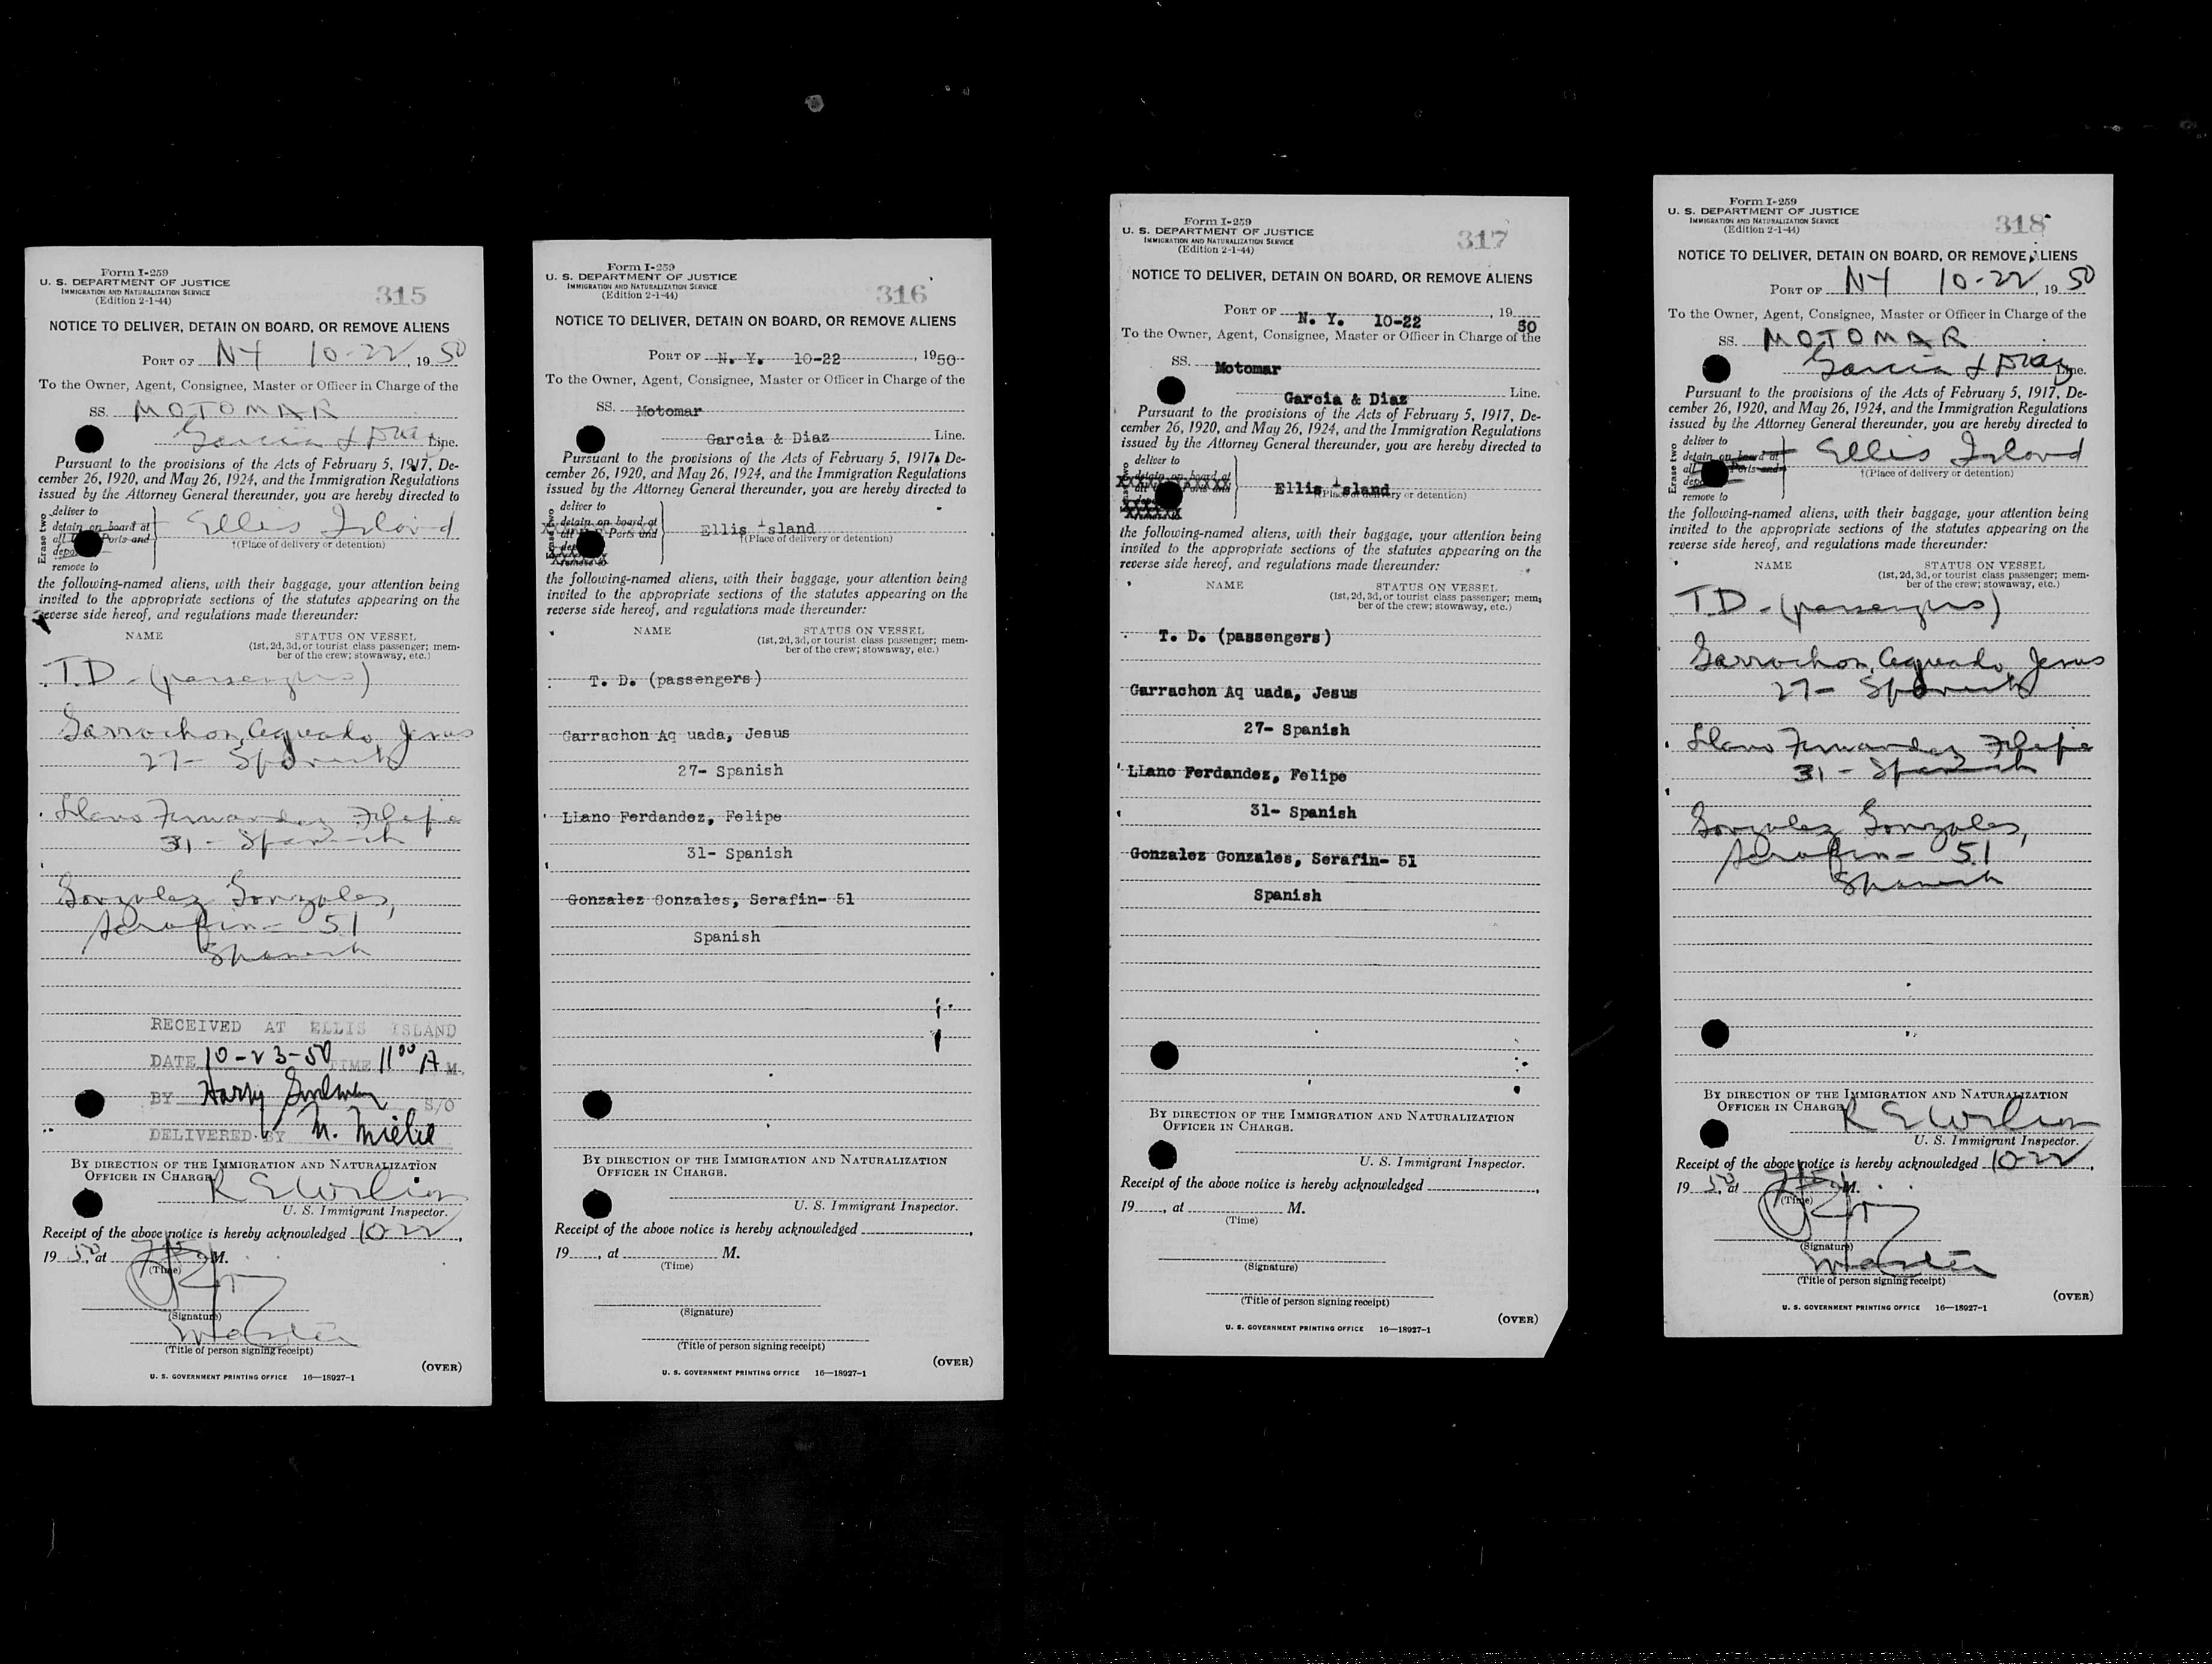 Form I-259
U. S. DEPARTMENT OF JUSTICE
IMMIGRATION AND NATURALIZATION SERVICE
(Edition 2-1-44)
315
NOTICE TO DELIVER, DETAIN ON BOARD, OR REMOVE ALIENS
PORT OF NY 10-22, 19 50
To the Owner, Agent, Consignee, Master or Officer in Charge of the
SS. MOTOMAR
Garcia & Diaz Line.
Pursuant to the provisions of the Acts of February 5, 1917, De-
cember 26, 1920, and May 26, 1924, and the Immigration Regulations
issued by the Attorney General thereunder, you are hereby directed to
Erase two
deliver to
detain on board at
all Ports and
depo
remove to
Ellis Island
†(Place of delivery or detention)
the following-named aliens, with their baggage, your attention being
invited to the appropriate sections of the statutes appearing on the
reverse side hereof, and regulations made thereunder:
NAME STATUS ON VESSEL
(1st, 2d, 3d, or tourist class passenger; mem-
ber of the crew; stowaway, etc.)
T.D - (passengers)
Garrachon, Aguado, Jesus
27 - Spanish
Llano Fernandez Felipe
31 - Spanish
Gonzalez Gonzales,
Serafin - 51
Spanish
RECEIVED AT ELLIS ISLAND
DATE 10-23-50 TIME 11 00 A M.
BY Harry S/O
DELIVERED BY
BY DIRECTION OF THE IMMIGRATION AND NATURALIZATION
OFFICER IN CHARGE
R E Wilson
U. S. Immigrant Inspector.
Receipt of the above notice is hereby acknowledged 10-22,
19 50, at M.
(Time)
(Signature)
Master
(Title of person signing receipt)
(OVER)
U. S. GOVERNMENT PRINTING OFFICE 16—18927-1
Form I-259
U. S. DEPARTMENT OF JUSTICE
IMMIGRATION AND NATURALIZATION SERVICE
(Edition 2-1-44)
316
NOTICE TO DELIVER, DETAIN ON BOARD, OR REMOVE ALIENS
PORT OF N. Y. 10-22, 1950
To the Owner, Agent, Consignee, Master or Officer in Charge of the
SS. Motomar
Garcia & Diaz Line.
Pursuant to the provisions of the Acts of February 5, 1917, De-
cember 26, 1920, and May 26, 1924, and the Immigration Regulations
issued by the Attorney General thereunder, you are hereby directed to
Erase two
deliver to
detain on board at
all Ports and
de
remove to
Ellis Island
†(Place of delivery or detention)
the following-named aliens, with their baggage, your attention being
invited to the appropriate sections of the statutes appearing on the
reverse side hereof, and regulations made thereunder:
NAME STATUS ON VESSEL
(1st, 2d, 3d, or tourist class passenger; mem-
ber of the crew; stowaway, etc.)
T. D. (passengers)
Garrachon Aq uada, Jesus
27- Spanish
LLano Ferdandez, Felipe
31- Spanish
Gonzalez Gonzales, Serafin- 51
Spanish
BY DIRECTION OF THE IMMIGRATION AND NATURALIZATION
OFFICER IN CHARGE.
U. S. Immigrant Inspector.
Receipt of the above notice is hereby acknowledged
19, at M.
(Time)
(Signature)
(Title of person signing receipt)
(OVER)
U. S. GOVERNMENT PRINTING OFFICE 16—18927-1
Form I-259
U. S. DEPARTMENT OF JUSTICE
IMMIGRATION AND NATURALIZATION SERVICE
(Edition 2-1-44)
317
NOTICE TO DELIVER, DETAIN ON BOARD, OR REMOVE ALIENS
PORT OF N. Y. 10-22, 19 50
To the Owner, Agent, Consignee, Master or Officer in Charge of the
SS. Motomar
Garcia & Diaz Line.
Pursuant to the provisions of the Acts of February 5, 1917, De-
cember 26, 1920, and May 26, 1924, and the Immigration Regulations
issued by the Attorney General thereunder, you are hereby directed to
deliver to
detain on board at
all Ports and
remove to
Ellis Island
†(Place of delivery or detention)
the following-named aliens, with their baggage, your attention being
invited to the appropriate sections of the statutes appearing on the
reverse side hereof, and regulations made thereunder:
NAME STATUS ON VESSEL
(1st, 2d, 3d, or tourist class passenger; mem-
ber of the crew; stowaway, etc.)
T. D. (passengers)
Garrachon Aq uada, Jesus
27- Spanish
LLano Ferdandez, Felipe
31- Spanish
Gonzalez Gonzales, Serafin- 51
Spanish
BY DIRECTION OF THE IMMIGRATION AND NATURALIZATION
OFFICER IN CHARGE.
U. S. Immigrant Inspector.
Receipt of the above notice is hereby acknowledged
19, at M.
(Time)
(Signature)
(Title of person signing receipt)
(OVER)
U. S. GOVERNMENT PRINTING OFFICE 16—18927-1
Form I-259
U. S. DEPARTMENT OF JUSTICE
IMMIGRATION AND NATURALIZATION SERVICE
(Edition 2-1-44)
318
NOTICE TO DELIVER, DETAIN ON BOARD, OR REMOVE ALIENS
PORT OF NY 10-22, 19 50
To the Owner, Agent, Consignee, Master or Officer in Charge of the
SS. MOTOMAR
Garcia & Diaz Line.
Pursuant to the provisions of the Acts of February 5, 1917, De-
cember 26, 1920, and May 26, 1924, and the Immigration Regulations
issued by the Attorney General thereunder, you are hereby directed to
Erase two
deliver to
detain on board at
all Ports and
depo
remove to
Ellis Island
†(Place of delivery or detention)
the following-named aliens, with their baggage, your attention being
invited to the appropriate sections of the statutes appearing on the
reverse side hereof, and regulations made thereunder:
NAME STATUS ON VESSEL
(1st, 2d, 3d, or tourist class passenger; mem-
ber of the crew; stowaway, etc.)
T.D - (passengers)
Garrachon, Aguado, Jesus
27 - Spanish
Llano Fernandez Felipe
31 - Spanish
Gonzalez Gonzales,
Serafin - 51
Spanish
BY DIRECTION OF THE IMMIGRATION AND NATURALIZATION
OFFICER IN CHARGE
R E Wilson
U. S. Immigrant Inspector.
Receipt of the above notice is hereby acknowledged 10-22,
19 50, at M.
(Time)
(Signature)
Master
(Title of person signing receipt)
(OVER)
U. S. GOVERNMENT PRINTING OFFICE 16—18927-1